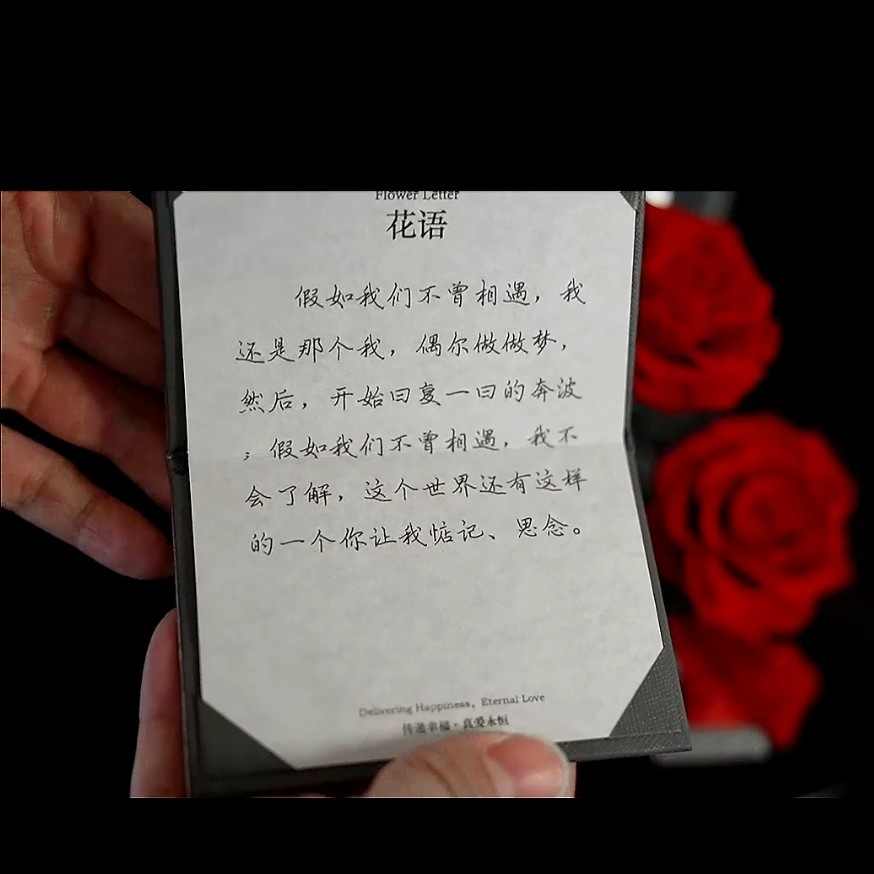 Flower Letter
花语
假如我们不曾相遇，我
还是那个我，偶尔做做梦，
然后，开始日复一日的奔波
；假如我们不曾相遇，我不
会了解，这个世界还有这样
的一个你让我惦记、思念。
Delivering Happiness, Eternal Love
传递幸福·真爱永恒